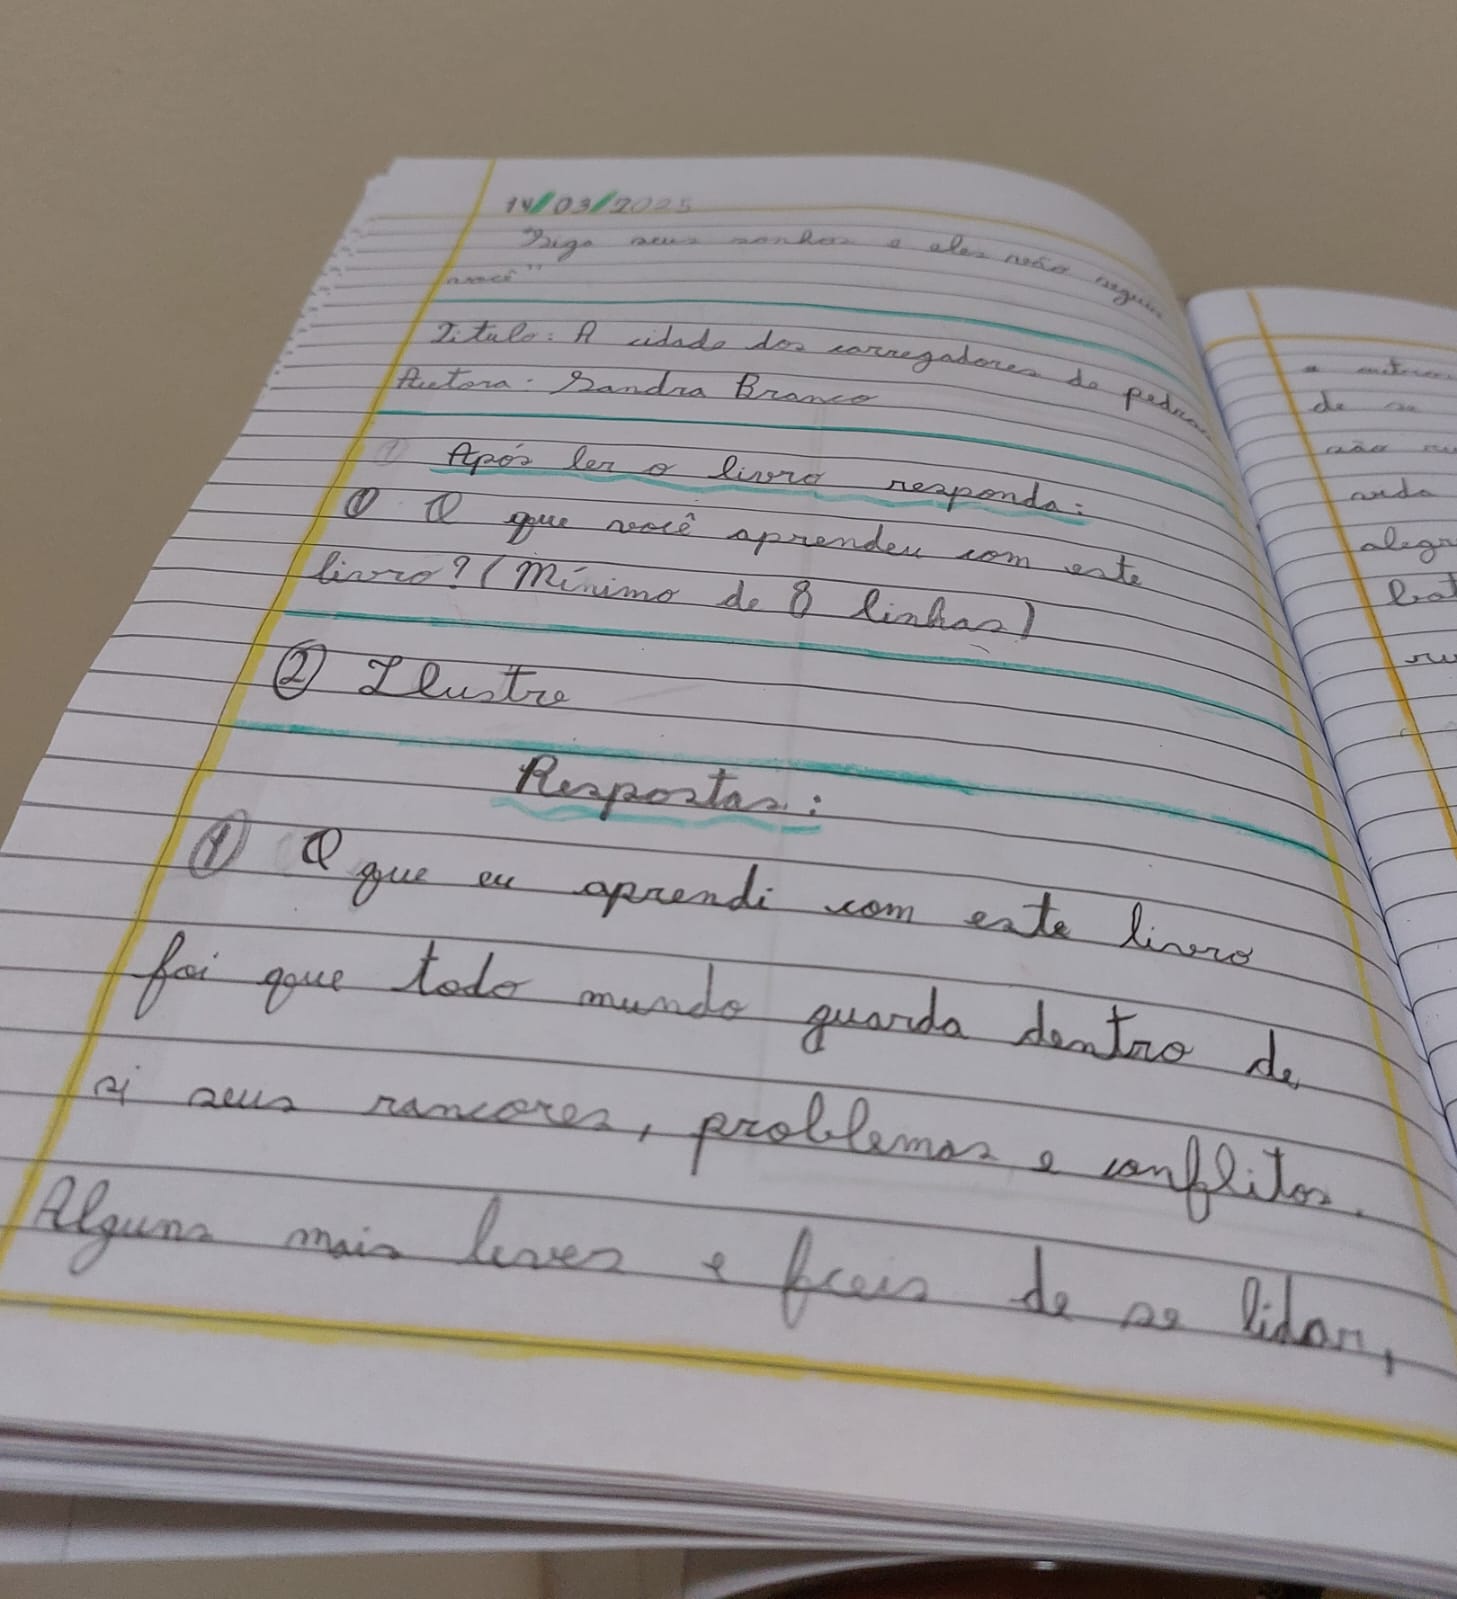 14/03/2025
"Siga seus sonhos e eles não seguem
você"
Titulo: A cidade dos carregadores de pedras
Autora: Sandra Branco
Após ler o livro responda:
① O que você aprendeu com este
livro? (Mínimo de 8 linhas)
② Ilustre
Respostas:
① O que eu aprendi com este livro
foi que todo mundo guarda dentro de
si seus rancores, problemas e conflitos.
Alguns mais leves e fceis de se lidar,
de se
não
alegr